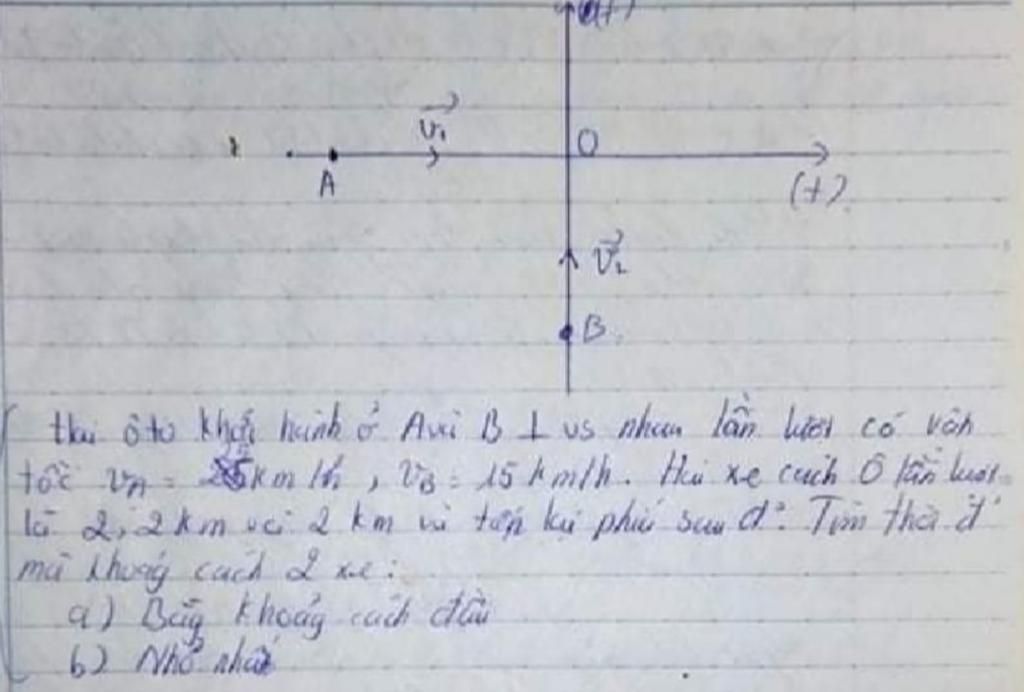 (+)
v₁
O
A
(+)
v₂
B
Hai ôtô khởi hành ở A và B ⊥ vs nhau lần lượt có vận
tốc v_A = km/h, v_B = 15 km/h. Hai xe cách O lần lượt
là 2,2 km và 2 km và tiến phía
mà khoảng cách 2 xe:
a) Bằg khoảg cách đầu
b) Nhỏ nhất